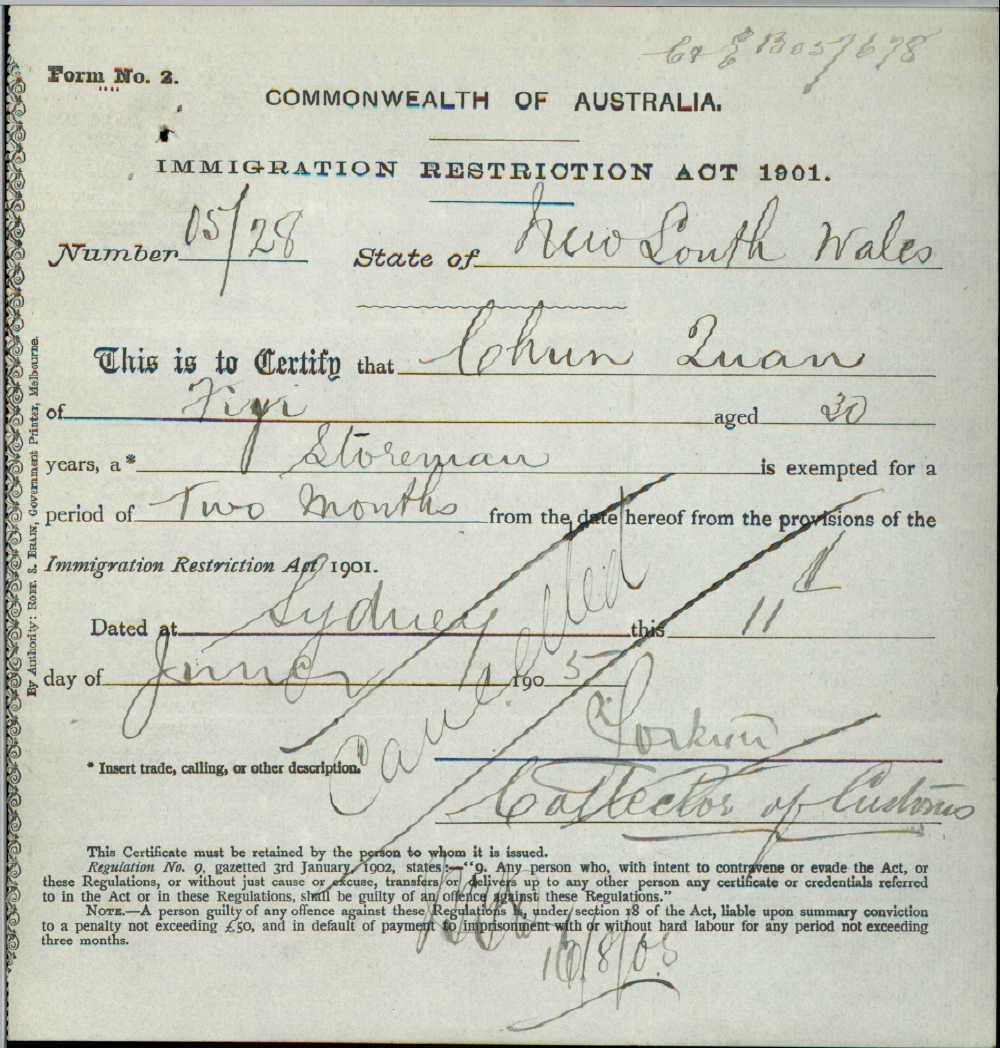 B05/678
Form No. 2.
COMMONWEALTH OF AUSTRALIA.
IMMIGRATION RESTRICTION ACT 1901.
Number 05/28 State of New South Wales
This is to Certify that Chun Quan
of Fiji aged 30
years, a* Storeman is exempted for a
period of Two Months from the date hereof from the provisions of the
Immigration Restriction Act 1901.
Dated at Sydney this 11
day of June 1905
Cancelled
* Insert trade, calling, or other description.
Collector of Customs
This Certificate must be retained by the person to whom it is issued.
Regulation No. 9, gazetted 3rd January, 1902, states:—"9. Any person who, with intent to contravene or evade the Act, or
these Regulations, or without just cause or excuse, transfers or delivers up to any other person any certificate or credentials referred
to in the Act or in these Regulations, shall be guilty of an offence against these Regulations."
NOTE.—A person guilty of any offence against these Regulations is, under section 18 of the Act, liable upon summary conviction
to a penalty not exceeding £50, and in default of payment to imprisonment with or without hard labour for any period not exceeding
three months.
16/8/05
By Authority: ROBT. S. BRAIN, Government Printer, Melbourne.